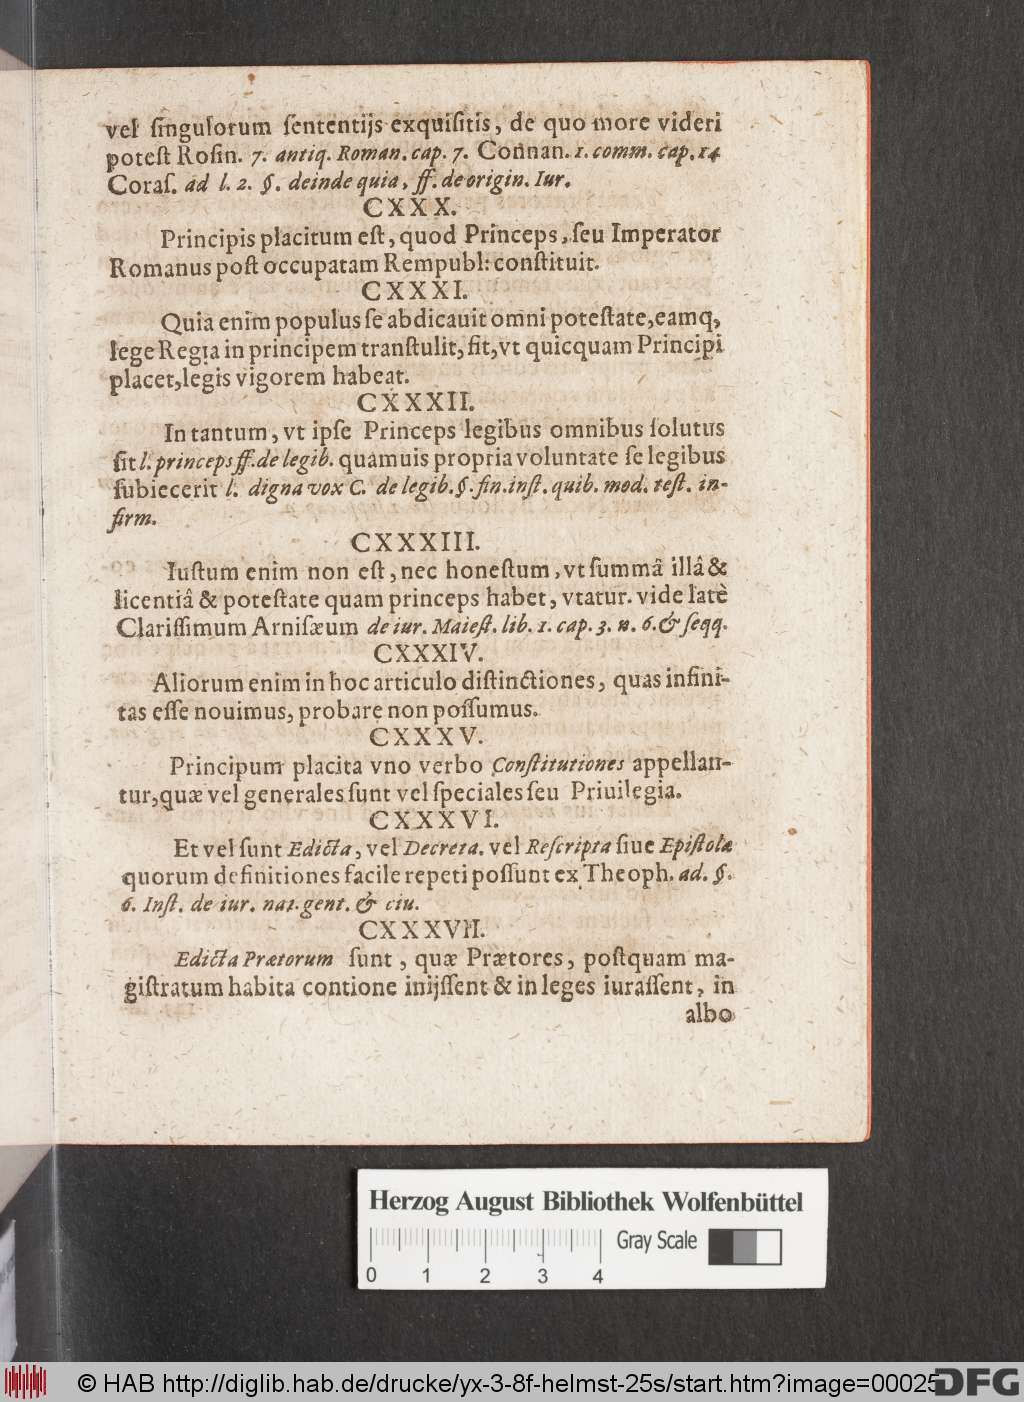 vel ſingulorum ſententijs exquiſitis, de quo more videri
poteſt Roſin. 7. antiq. Roman. cap. 7. Connan. 1. comm. cap. 14
Coraſ. ad l. 2. §. deinde quia, ff. de origin. Iur.
CXXX.
Principis placitum eſt, quod Princeps, ſeu Imperator
Romanus poſt occupatam Rempubl: conſtituit.
CXXXI.
Quia enim populus ſe abdicauit omni poteſtate, eamq,
lege Regia in principem tranſtulit, fit, vt quicquam Principi
placet, legis vigorem habeat.
CXXXII.
In tantum, vt ipſe Princeps legibus omnibus ſolutus
ſit l. princeps ff. de legib. quamuis propria voluntate ſe legibus
ſubiecerit l. digna vox C. de legib. §. fin. inſt. quib. mod. teſt. in-
firm.
CXXXIII.
Iuſtum enim non eſt, nec honeſtum, vt ſummâ illâ &
licentiâ & poteſtate quam princeps habet, vtatur. vide latè
Clariſſimum Arniſæum de iur. Maieſt. lib. 1. cap. 3. n. 6. & ſeqq.
CXXXIV.
Aliorum enim in hoc articulo diſtinctiones, quas infini-
tas eſſe nouimus, probare non poſſumus.
CXXXV.
Principum placita vno verbo Conſtitutiones appellan-
tur, quæ vel generales ſunt vel ſpeciales ſeu Priuilegia.
CXXXVI.
Et vel ſunt Edicta, vel Decreta. vel Reſcripta ſiue Epiſtolæ
quorum definitiones facile repeti poſſunt ex Theoph. ad. §.
6. Inſt. de iur. nat. gent. & ciu.
CXXXVII.
Edicta Prætorum ſunt, quæ Prætores, poſtquam ma-
giſtratum habita contione inijſſent & in leges iuraſſent, in
albo
Herzog August Bibliothek Wolfenbüttel
Gray Scale
0 1 2 3 4
© HAB http://diglib.hab.de/drucke/yx-3-8f-helmst-25s/start.htm?image=00025
DFG